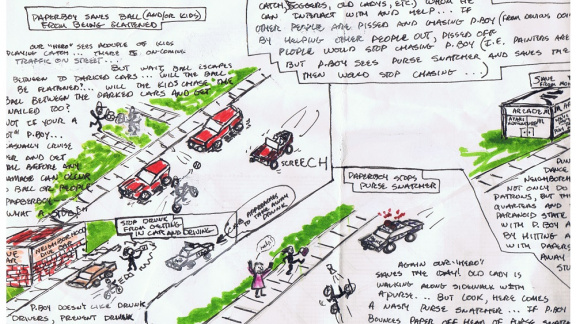 PAPERBOY SAVES BALL (AND/OR KIDS)
FROM BEING FLATTENED
OUR "HERO" SEES A COUPLE OF KIDS
PLAYING CATCH... THERE IS ONCOMING
TRAFFIC ON STREET...
BUT WAIT, BALL ESCAPES
BETWEEN TO PARKED CARS... WILL THE BALL
BE FLATTENED?... WILL THE KIDS CHASE THE
BALL BETWEEN THE PARKED CARS AND GET
NAILED TOO?
NOT IF YOUR A
P.BOY...
CASUALLY CRUISE
AND GET
BALL BEFORE ANY
DAMAGE CAN OCCUR
TO BALL OR PEOPLE
PAPERBOY
WHAT A STUD
CATCH, JOGGERS, OLD LADYS, ETC.) WHOM HE
CAN INTERACT WITH AND HELP... IF
OTHER PEOPLE ARE PISSED AND CHASING P.BOY (FROM
BY HELPING OTHER PEOPLE OUT, PISSED OFF
PEOPLE WOULD STOP CHASING P.BOY (I.E. PAINTERS ARE
BUT P.BOY SEES PURSE SNATCHER AND SAVES THE
THEN WOULD STOP CHASING...)
SCREECH
SAVE
FROM
ARCADE
ATARI
DANCE
NEIGHBORHOOD
NOT ONLY DO
PATRONS, BUT THE
QUARTERS AND
PARANOID STATE
WITH P.BOY
BY HITTING
WITH PAPERS
AWAY
STOP DRUNK
FROM GETTING
IN CAR AND DRIVING
APPREARS
TO TAKE AWAY
DRUNK
NEIGHBORHOOD
BAR
P.BOY DOESN'T LIKE DRUNK
DRIVERS, PREVENT DRUNK
PAPERBOY STOPS
PURSE SNATCHER
HELP!
AGAIN OUR "HERO"
SAVES THE DAY! OLD LADY IS
WALKING ALONG SIDEWALK WITH
A PURSE... BUT LOOK, HERE COMES
A NASTY PURSE SNATCHER... IF P.BOY
BOUNCES PAPER OFF HEAD OF PURSE